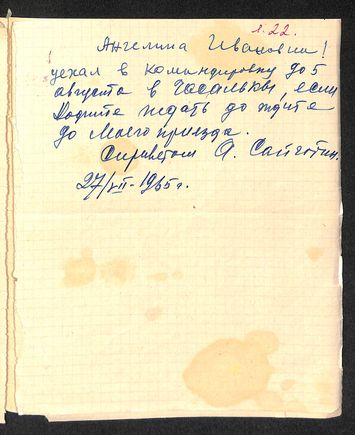 л. 22.
Ангелина Ивановна!
уехал в командировку до 5
августа в Часельку, если
ходите ждать до ждите
до моего приезда.
Сприветом А. Сайготин.
27/VII-1965г.